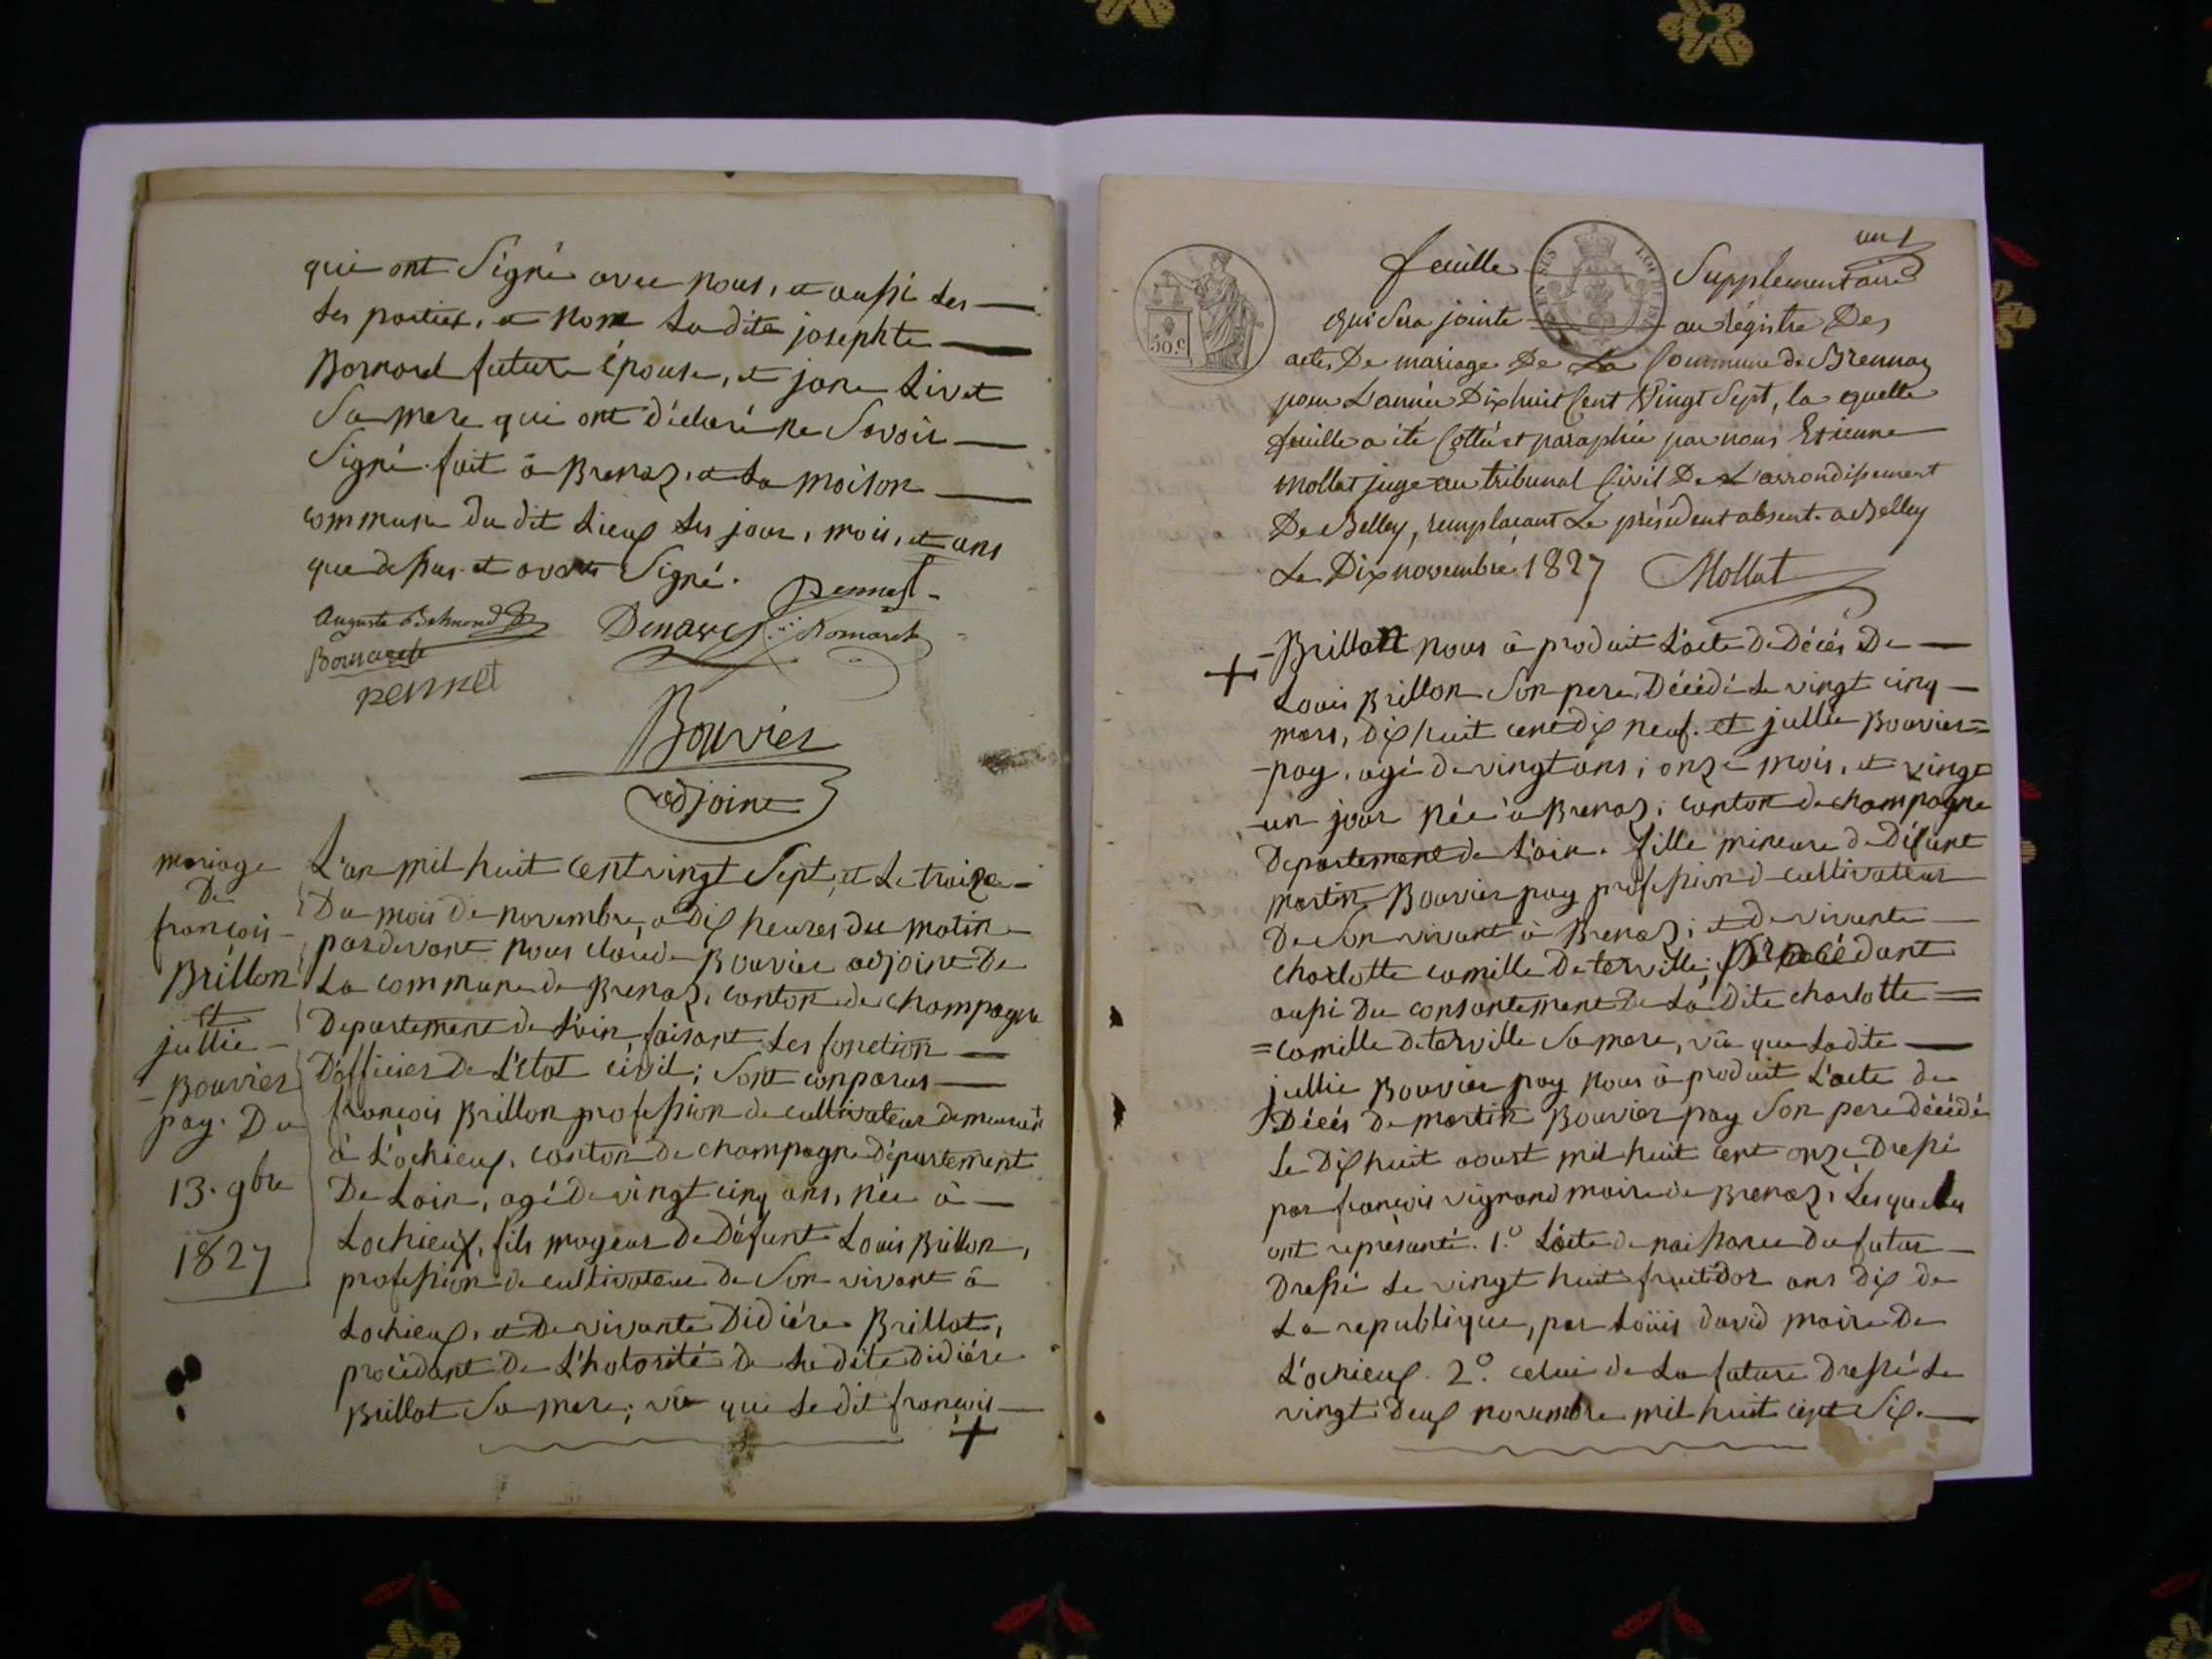 qui ont Signé avec nous, et aussi les
les parties, et non la dite josephte
Bornard future épouse, et jane Livet
Sa mere qui ont déclaré ne Savoir
Signé. fait à Brenaz, et la maison
commune du dit Lieux les jour, mois, et ans
que dessus et avons Signé.
pennet
auguste
Bornarde
pennet
Bouvier
adjoint
mariage
De
françois
Brillon
et
jullie
Bouvier
pay. Du
13. 9bre
1827
L'an mil huit cent vingt Sept, et Le traize
Du mois de novembre, à dix heures du matin
pardevant nous claude Bouvier adjoint De
La commune de Brenaz, canton de champagne
Departement de L'ain faisant les fonction
D'officier De L'etat civil; Sont conparus
françois Brillon profession de cultivateur demeurant
à L'ochieux, canton de champagne département
De Lain, agé de vingt cinq ans, née à
Lochieux, fils mageur de Défunt Louis Brillon,
profession de cultivateur de Son vivant à
Lochieux, et De vivante Didiére Brillat,
procédant de L'hotorité de La dite didiére
Brillat Sa mere; vû que Le dit françois
+
un
feuille Supplementaire
50.c
qui Sera jointe au régistre Des
actes De mariage De La Commune de Brennaz
pour L'année Dix huit Cent Vingt Sept, la quelle
feuille a été Cottée et paraphée par nous Etienne
Mollat juge au tribunal Civil De L'arrondissement
De Belley, remplaçant Le président absent. a Belley
Le Dix novembre 1827 Mollat
+ Brillon nous à produit L'acte De Décés De
Louis Brillon Son pere, Décédé Le vingt cinq
mars, dix huit cent dix neuf. et jullie Bouvier=
-pay, agé de vingt ans, onze mois, et vingt
-un jour née à Brenaz, canton de champagne
Departement de L'ain. fille mineure de Défunt
martin Bouvier pay profession de cultivateur
De Son vivant à Brenaz; et de vivante
charlotte camille Deterville; procédant
aussi Du consantement De La Dite charlotte =
= camille deterville Sa mere, vû que Ladite
jullie Bouvier pay nous à produit L'acte de
Décés de martin Bouvier pay Son pere décédé
Le Dix huit aoust mil huit cent onze Dressé
par françois vignand maire de Brenaz, Lesquelles
ont représanté. 1.° L'acte de naissance du futur
Dressé Le vingt huit fruitidor ans dix de
La republique, par Loüis david maire De
L'ochieux. 2.° celui de La future Dressé Le
vingt Deux novembre mil huit cent Six.